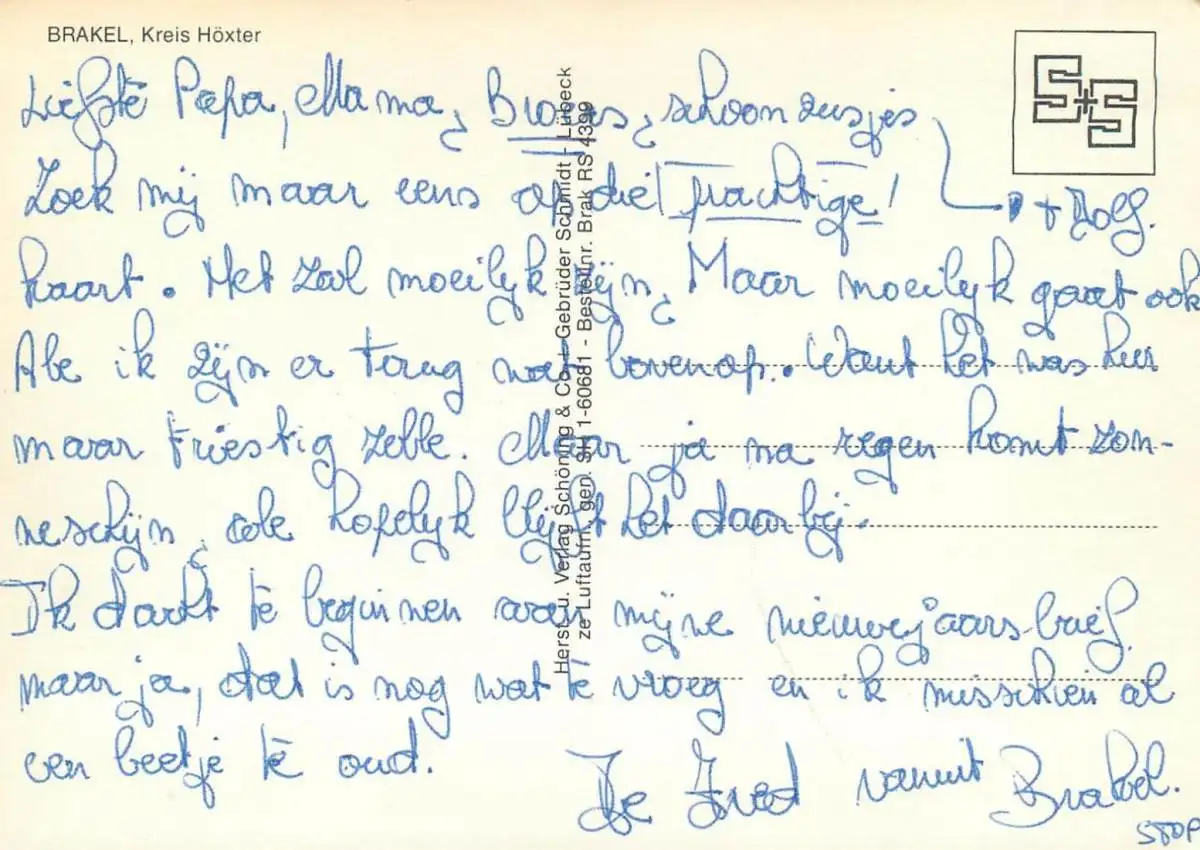 BRAKEL, Kreis Höxter
S+S
Liefste Papa, Mama, Broers, schoonzusjes
+ Rolf.
Zoek mij maar eens op die prachtige!
kaart. Het zal moeilijk zijn, Maar moeilijk gaat ook
Abe ik zijn er terug wat bovenop. Want het was hier
maar triestig zelle. Maar ja na regen komt zon-
neschijn, ole hopelijk blijft het daar bij.
Ik dacht te beginnen aan mijne nieuwejaarsbrief.
maar ja, dat is nog wat te vroeg en ik misschien al
een beetje te oud.
Je Fred vanuit Brakel.
STOP
Herst. u. Verlag Schöning & Co + Gebrüder Schmidt - Lübeck
ze Luftaufn. gen. SH 1-60681 - Bestellnr. Brak RS 4399